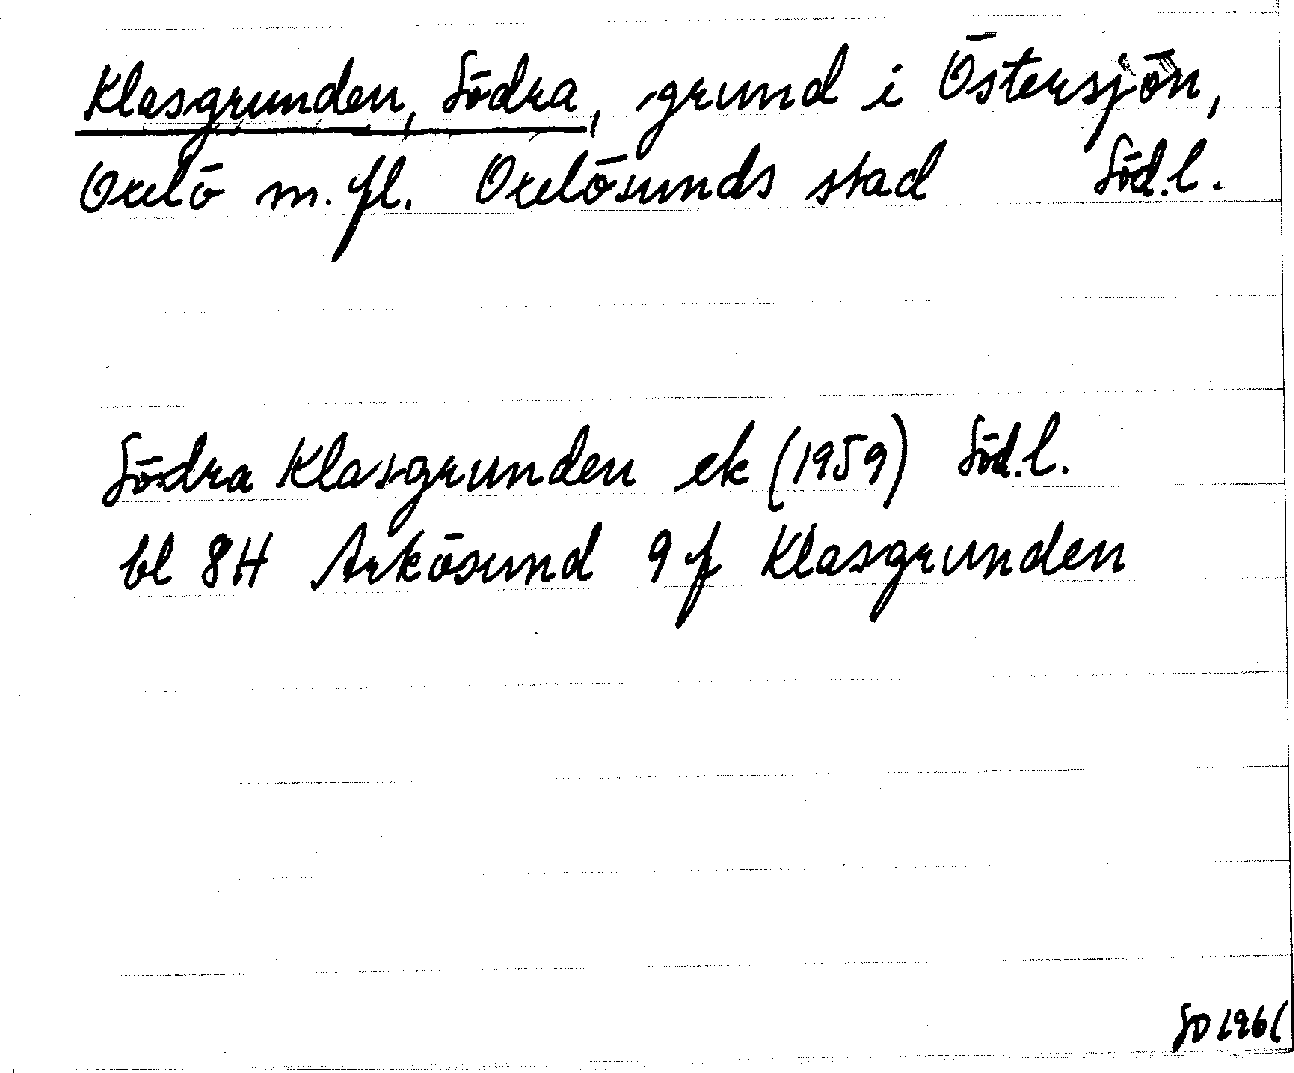 Klasgrunden, Södra, grund i Östersjön,
Oxelö m.fl. Oxelösunds stad Söd.l.
Södra Klasgrunden ek (1959) Söd.l.
bl 8H Arkösund 9f Klasgrunden